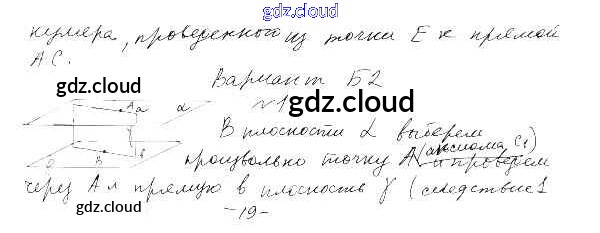 gdz.cloud
куляра, проведенного из точки E к прямой
AC.
gdz.cloud
Вариант Б2
№1
gdz.cloud
A a α
B β
В плоскости α выберем
произвольно точку A (аксиома C1) и проведем
gdz.cloud
через A и прямую в плоскость γ (следствие 1
gdz.cloud
gdz.cloud
-19-